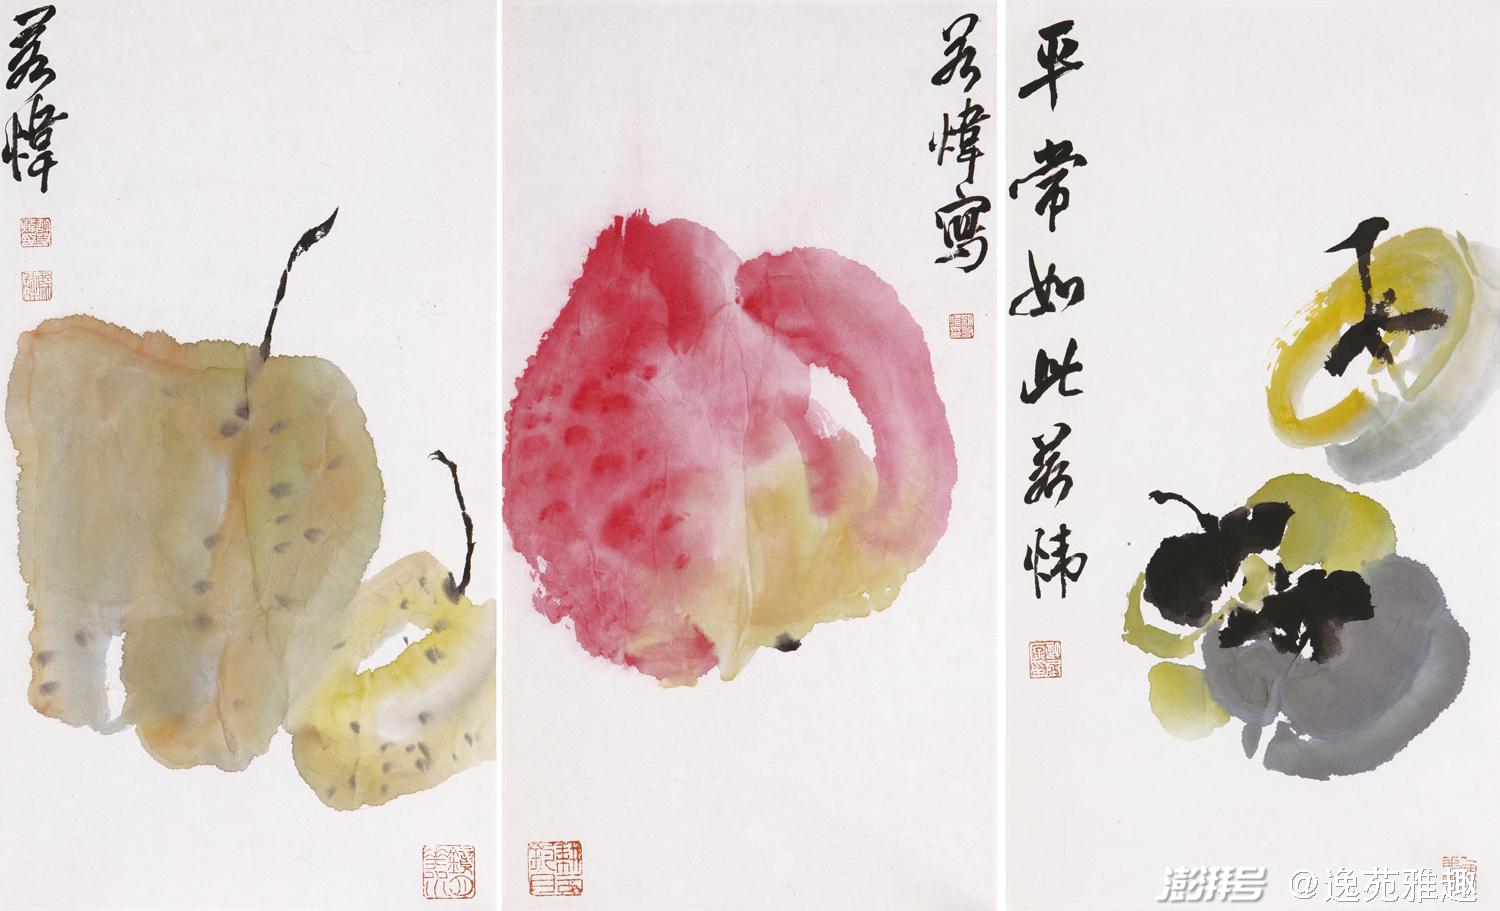 若煒
若煒寫
平常如此若炜
澎湃号 @逸苑雅趣